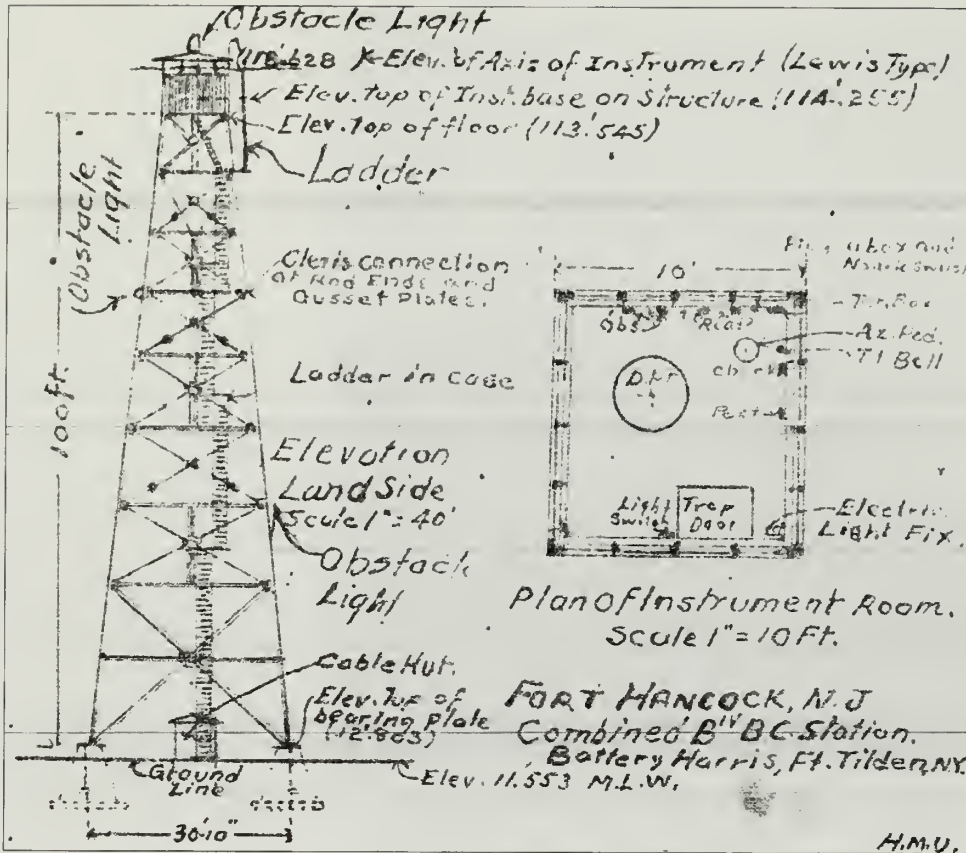 Obstacle Light
Elev. of Axis of Instrument (Lewis Type)
Elev. top of Inst. base on Structure (114.'255)
Elev. top of floor (113.'545)
Ladder
Obstacle
Light
100ft.
Clevis connection
at Rod Ends and
Gusset Plates.
Ladder in cage
Elevation
Land Side
Scale 1"=40'
Obstacle
Light
Cable Hut.
Elev. Top of
bearing plate
Ground
Line
Elev. 11.553 M.L.W.
30'10"
10'
Obs.
Az. Ped.
Bell
Light
Switch
Trap
Door
Electric
Light Fix.
Plan Of Instrument Room.
Scale 1"=10 Ft.
FORT HANCOCK, N.J
Combined B''' B.C. Station.
Battery Harris, Ft. Tilden, N.Y.
H.M.U.